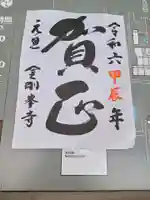 令和六甲辰年
賀正
元旦
金剛峯寺